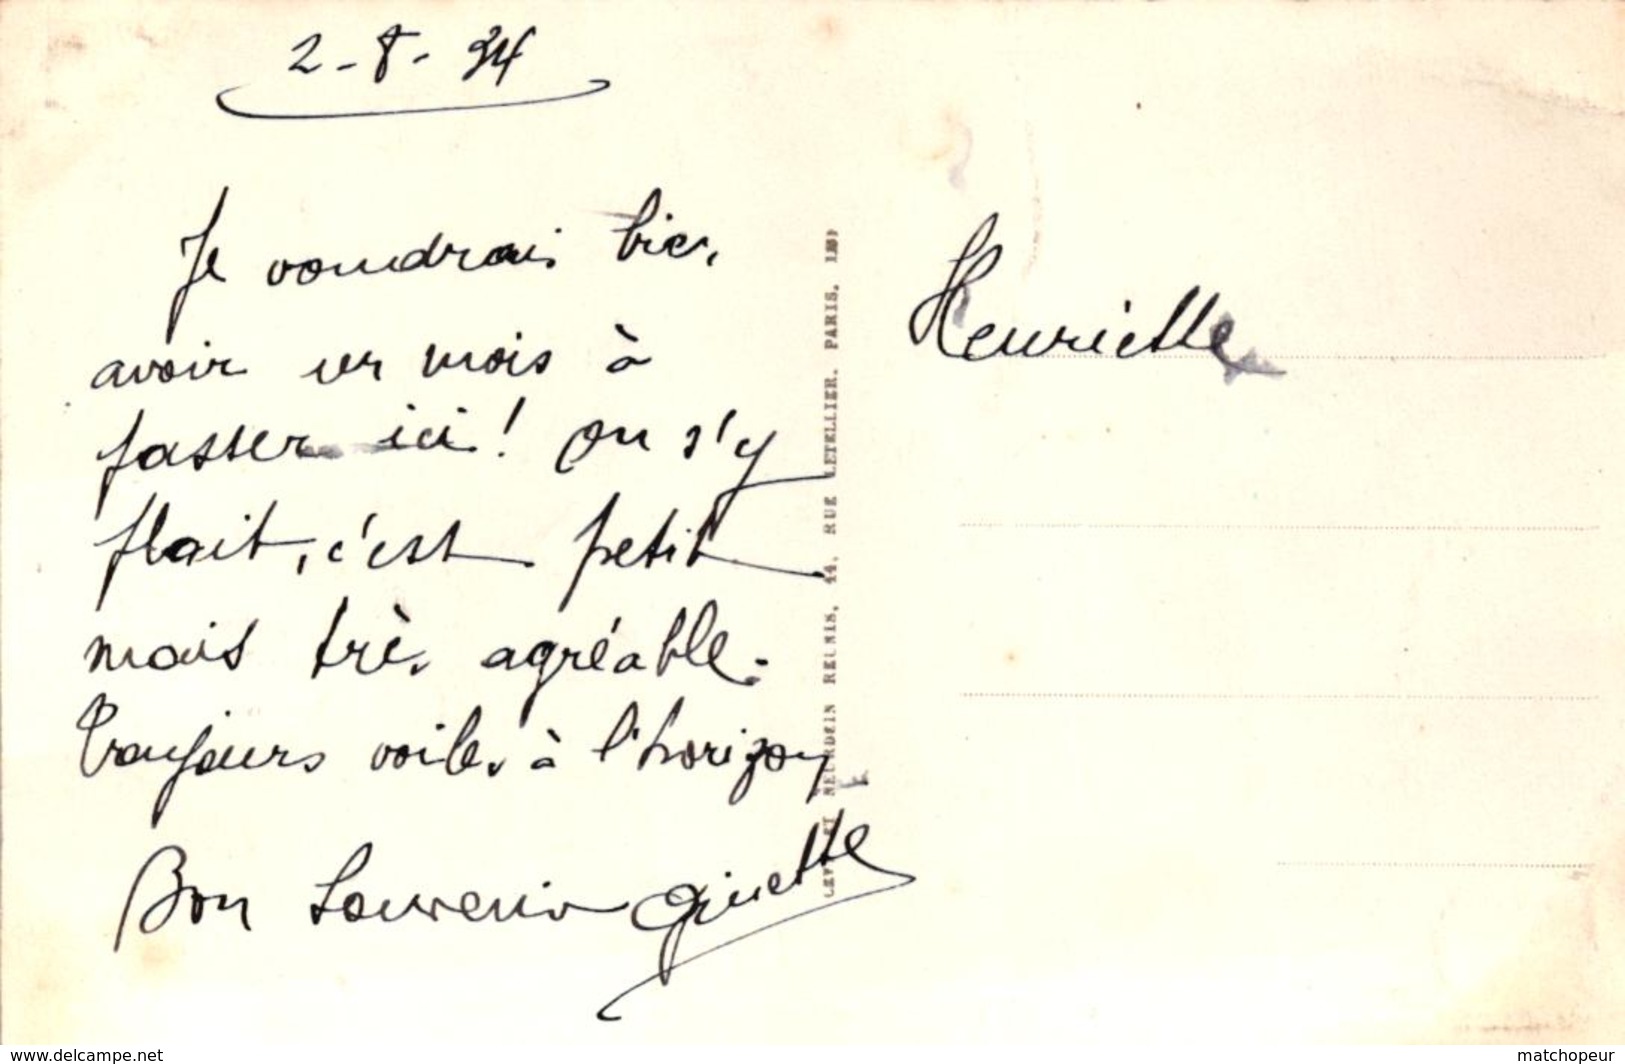 2-8-34
Je voudrais bien
avoir un mois à
passer ici! on s'y
plait, c'est petit
mais très agréable.
Toujours voiles à l'horizon
Bon Souvenir Ginette
Henriette
NEURDEIN REUNIS, 44, RUE LETELLIER, PARIS.
www.delcampe.net
matchopeur